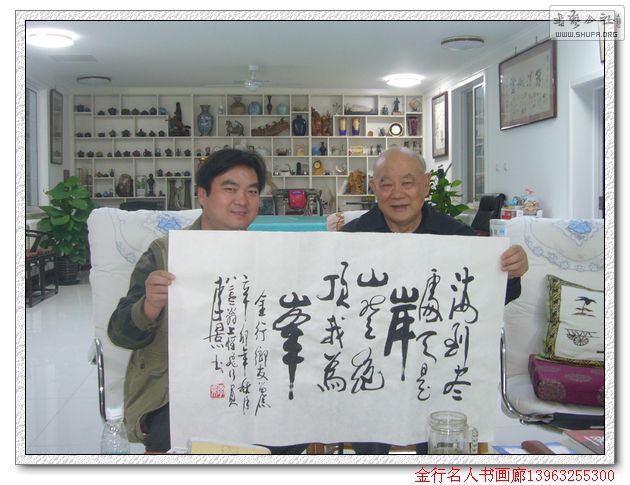 WWW.SHUFA.ORG
海到尽
處天是
岸
山登绝
頂我為
峯
金行鄉友
辛卯年秋
李景书
金行名人书画廊13963255300